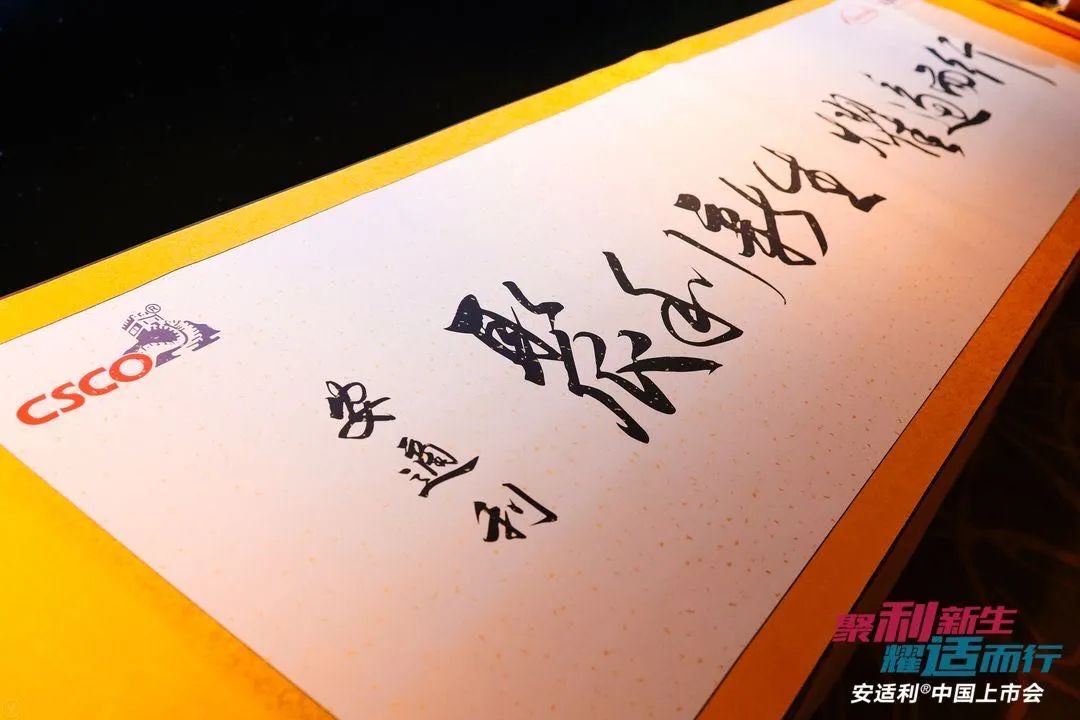 CSCO®
聚利新生 耀适而行
安適利
聚利新生
耀适而行
安适利®中国上市会